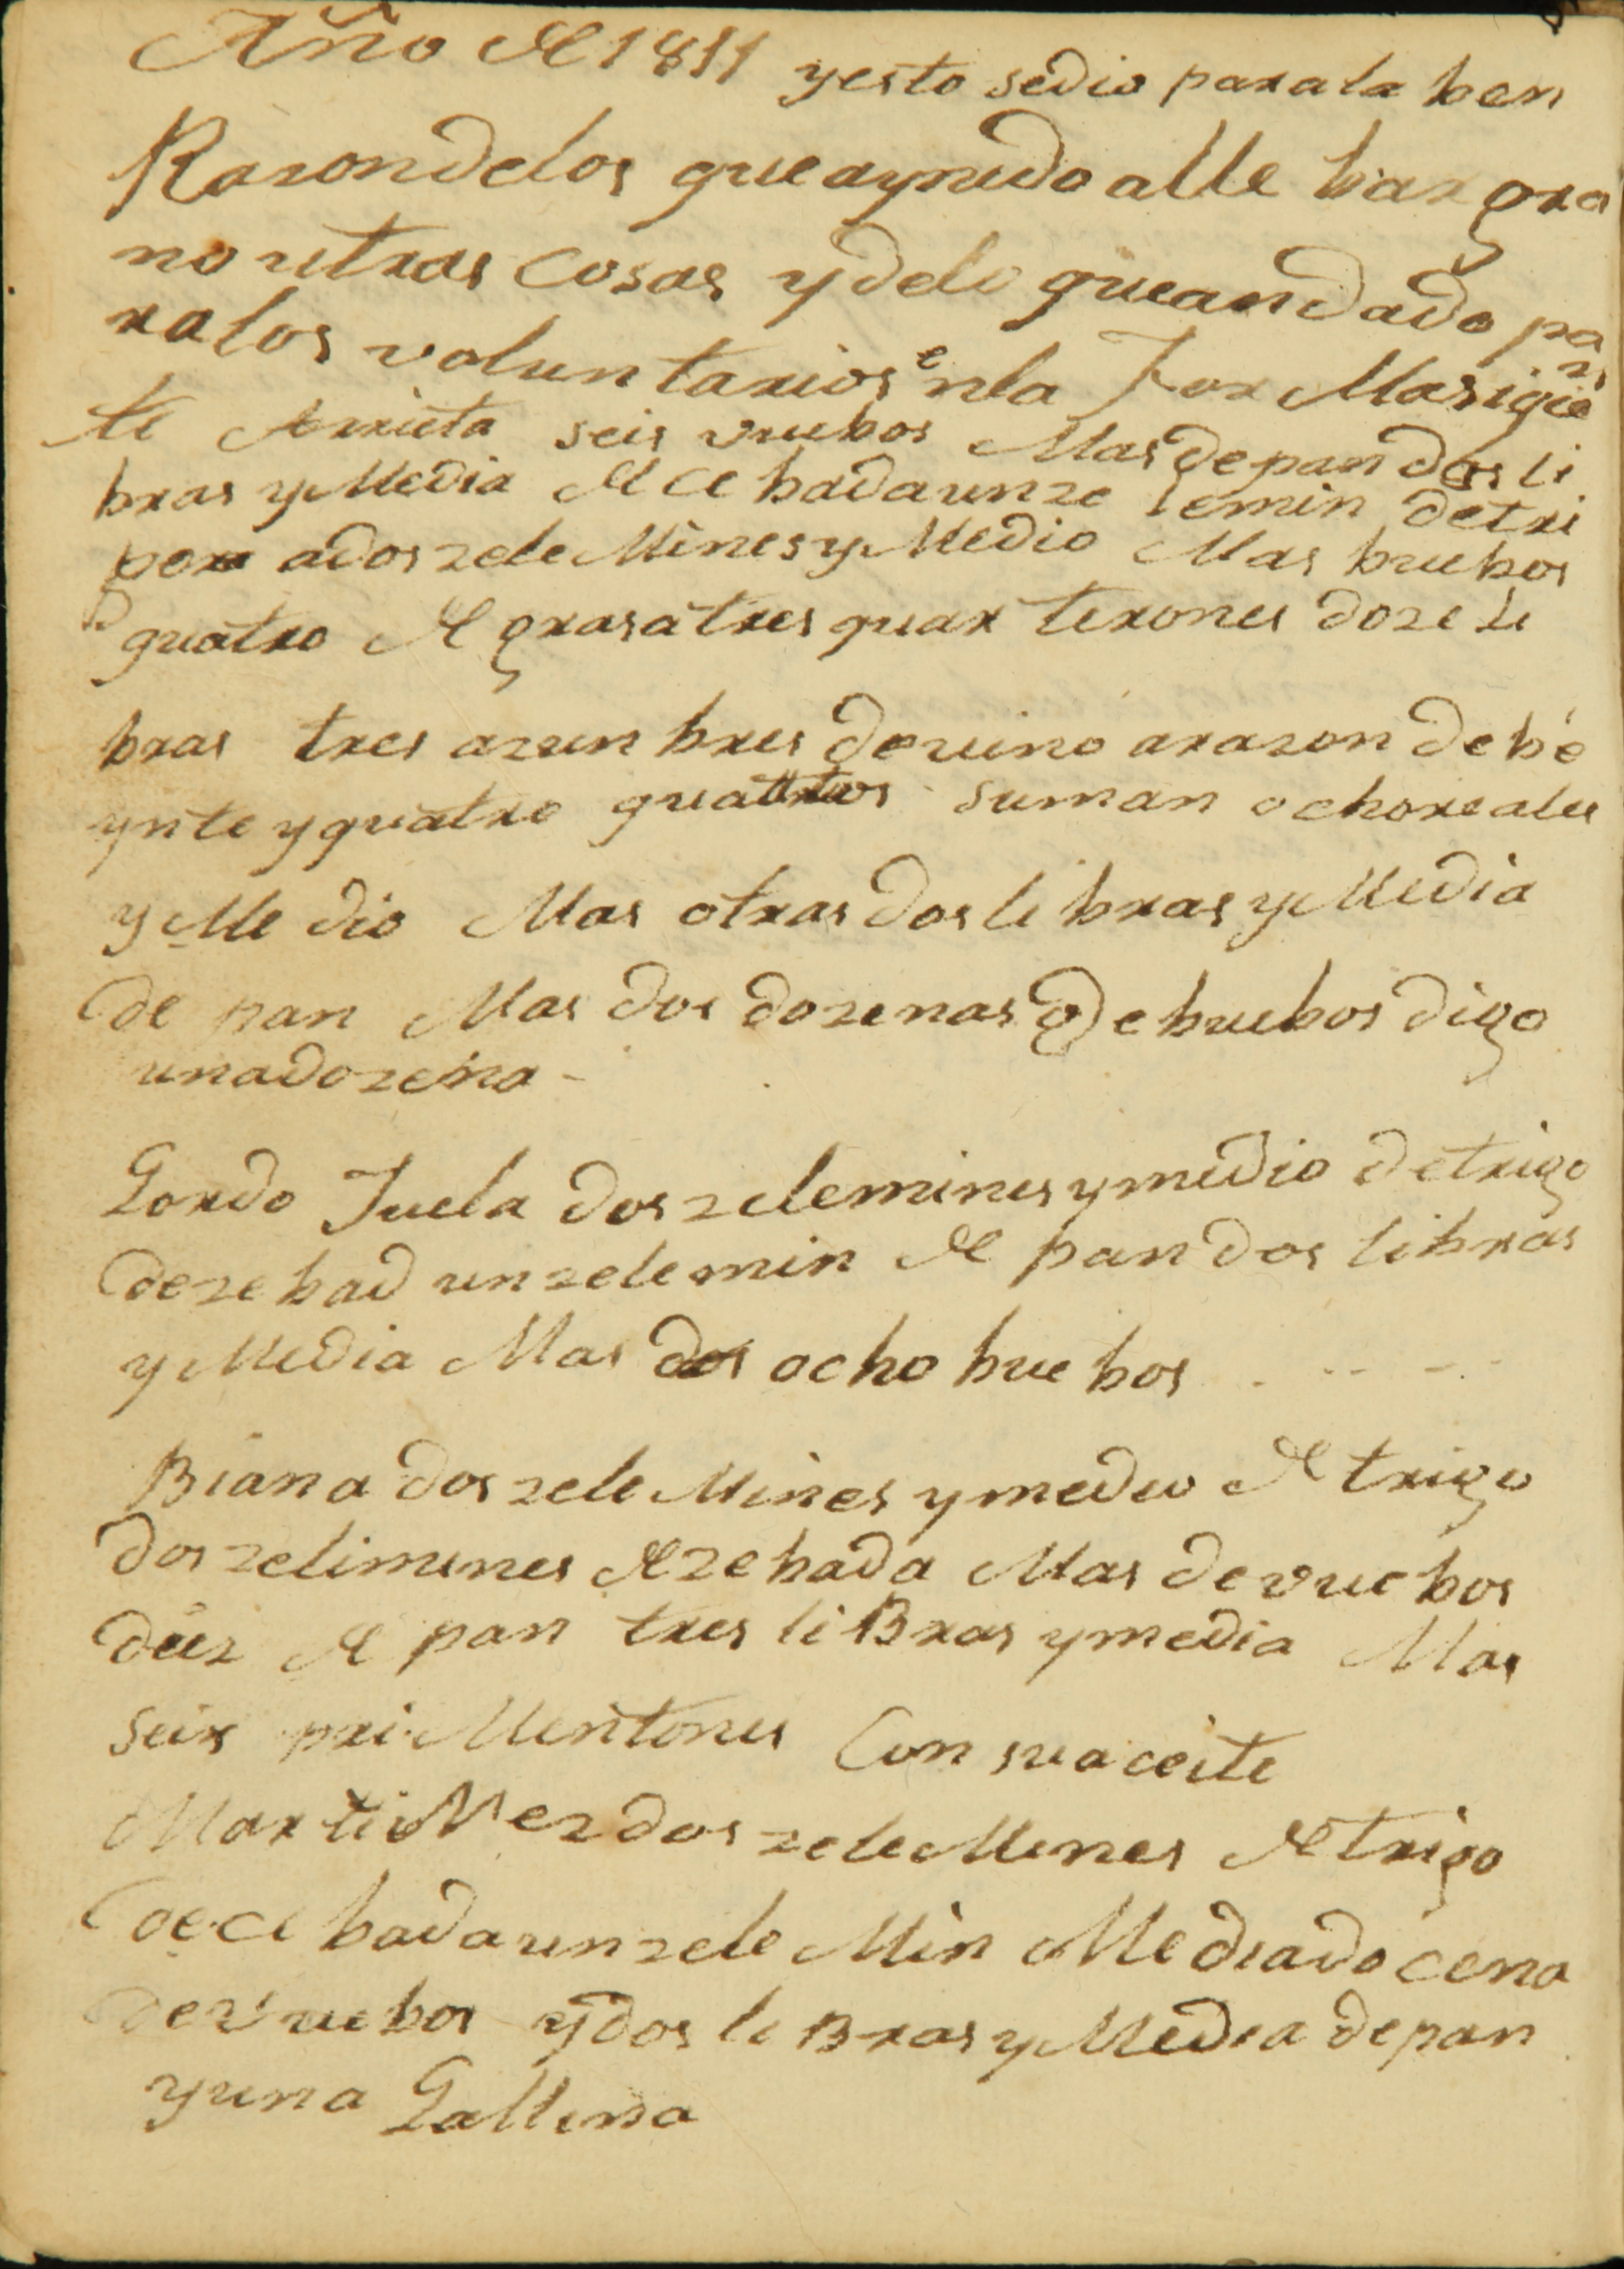 Año de 1811 yesto sedio parala ben
Razondelos que aynido alle bar gra
no utras cosas y delo queandado pa
ralos voluntarios enla For Masigien
te Arrieta seis vuebos Mas de pan dos li
bras y Media de ce bada un ze lemin de tri
go ados zele Mines y Medio Mas huebos
quatro de grasa tres quar terones doze li
bras tres azun bres de vino arazon de be
ynte y quatro quartos suman ocho reales
y Me dio Mas otras dos li bras y Media
de pan Mas dos dozenas de huebos digo
una dozena -
Gordo Juela dos zelemines y medio de trigo
de ze bad un zelemin de pan dos libras
y Media Mas dos ocho hue bos
Biana dos zele Mines y medio de trigo
dos zelimines de ze bada Mas de vue bos
diez de pan tres li Bras y media Mas
seis pri Mentones Con su aceite
Martinez dos zele Mines de trigo
de ce bada un zele Min Media docena
de vue bos y dos li Bras y Media de pan
y una Gallina